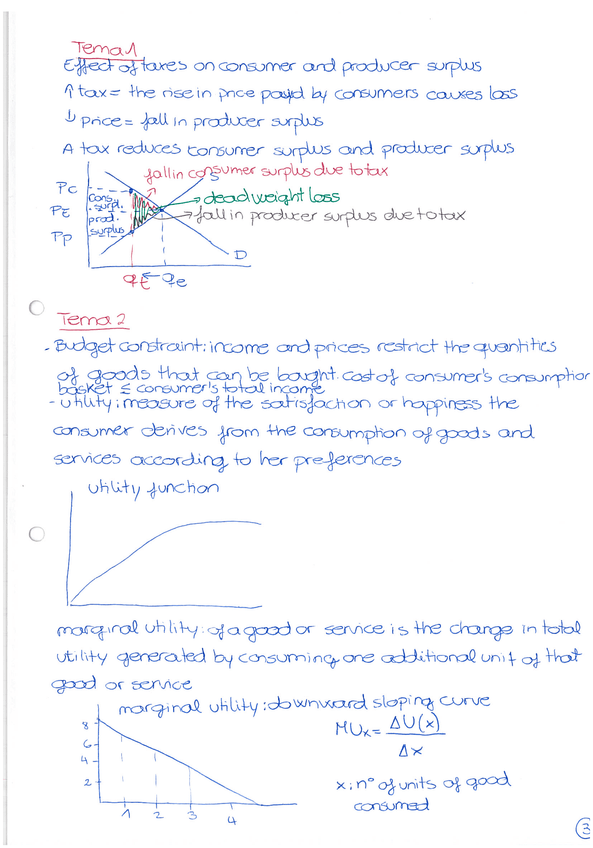 Tema 1
Effect of taxes on consumer and producer surplus
↑ tax = the rise in price payd by consumers causes loss
↓ price = fall in producer surplus
A tax reduces consumer surplus and producer surplus
fall in consumer surplus due to tax
S
Pc
cons.
surpl.
deadweight loss
PE
prod.
surplus
fall in producer surplus due to tax
Pp
D
qt ← qe
Tema 2
- Budget constraint: income and prices restrict the quantities
of goods that can be bought. cost of consumer's consumption
basket ≤ consumer's total income
- Utility: measure of the satisfaction or happiness the
consumer derives from the consumption of goods and
services according to her preferences
utility function
marginal utility: of a good or service is the change in total
utility generated by consuming one additional unit of that
good or service
marginal utility: downward sloping curve
8
6
4
2
1 2 3 4
MUx = ΔU(x) / Δx
x: nº of units of good
consumed
3